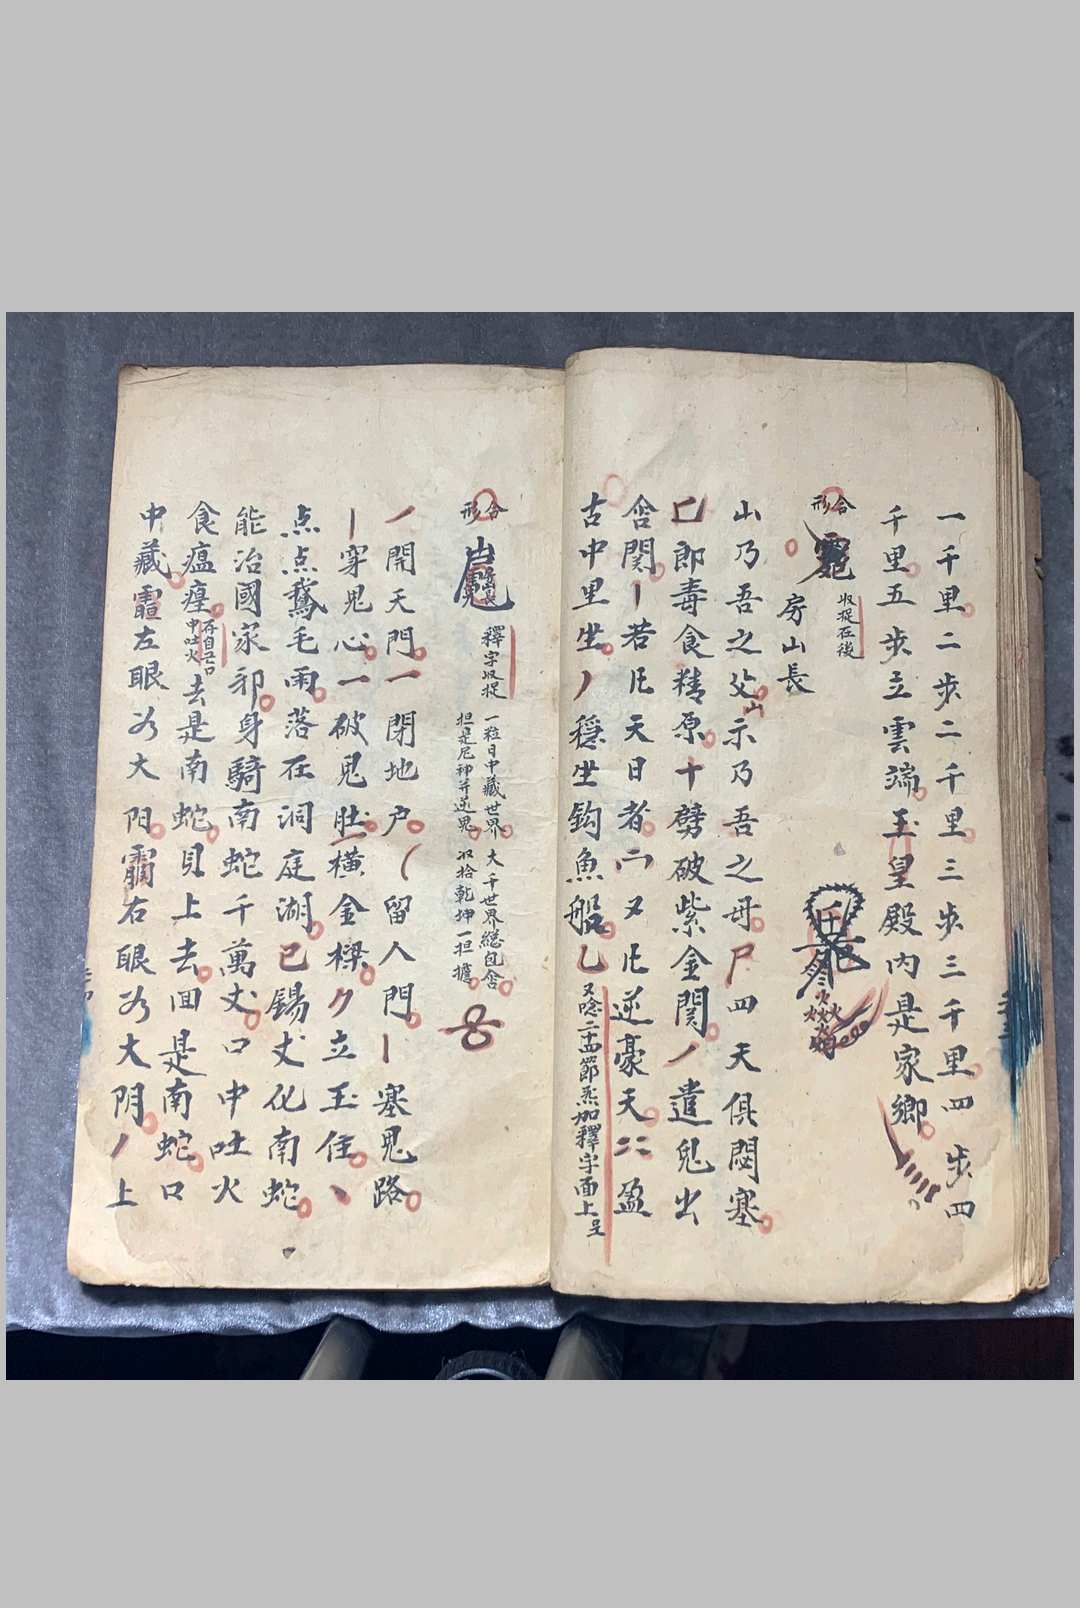 一千里二步二千里三步三千里四步四
千里五步立雲端玉皇殿內是家鄉
合形
收捉在後
房山長
山乃吾之父示乃吾之母尸四天俱閉塞
郎毒食精原十劈破紫金関丿遣鬼出
関丨若氏天日者又氏逆豪天二二盈
古中里坐丿穩坐鈎魚船乙
又唸二十四節炁加釋字面上呈
合形
釋字收捉
一粒日中藏世界大千世界總包含
担是尼神并逆鬼收拾乾坤一担擔
丿開天門一閉地户留人門丨塞鬼路
丨穿鬼心一破鬼肚橫金樑立玉住
点点鵞毛雨落在洞庭湖已錫丈化南蛇
能治國家邪身騎南蛇千萬丈口中吐火
食瘟瘟
存自己口中吐火
去是南蛇見上去回是南蛇口
中藏左眼为大阳右眼为大阴丿上